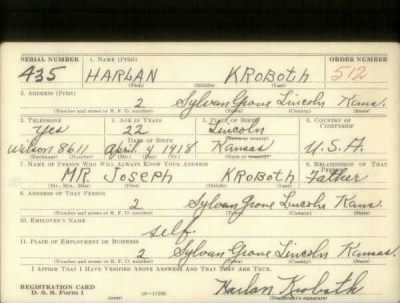 SERIAL NUMBER 1. NAME (Print) ORDER NUMBER
435 HARLAN KROBOTH 512
(First) (Middle) (Last)
2. ADDRESS (Print)
2 Sylvan Grove Lincoln Kans.
(Number and street or R. F. D. number) (Town) (County) (State)
3. TELEPHONE 4. AGE IN YEARS 5. PLACE OF BIRTH 6. COUNTRY OF CITIZENSHIP
yes 22 Lincoln
DATE OF BIRTH (Town or county)
Wilson 8611 April 4 1918 Kansas U.S.A.
(Exchange) (Number) (Mo.) (Day) (Yr.) (State or country)
7. NAME OF PERSON WHO WILL ALWAYS KNOW YOUR ADDRESS 8. RELATIONSHIP OF THAT PERSON
MR. JOSEPH KROBOTH Father
(Mr., Mrs., Miss) (First) (Middle) (Last)
9. ADDRESS OF THAT PERSON
2 Sylvan Grove Lincoln Kans.
(Number and street or R. F. D. number) (Town) (County) (State)
10. EMPLOYER'S NAME
self.
11. PLACE OF EMPLOYMENT OR BUSINESS
2 Sylvan Grove Lincoln Kansas.
(Number and street or R. F. D. number) (Town) (County) (State)
I AFFIRM THAT I HAVE VERIFIED ABOVE ANSWERS AND THAT THEY ARE TRUE.
REGISTRATION CARD
D. S. S. Form 1 Harlan Kroboth
(Registrant's signature)